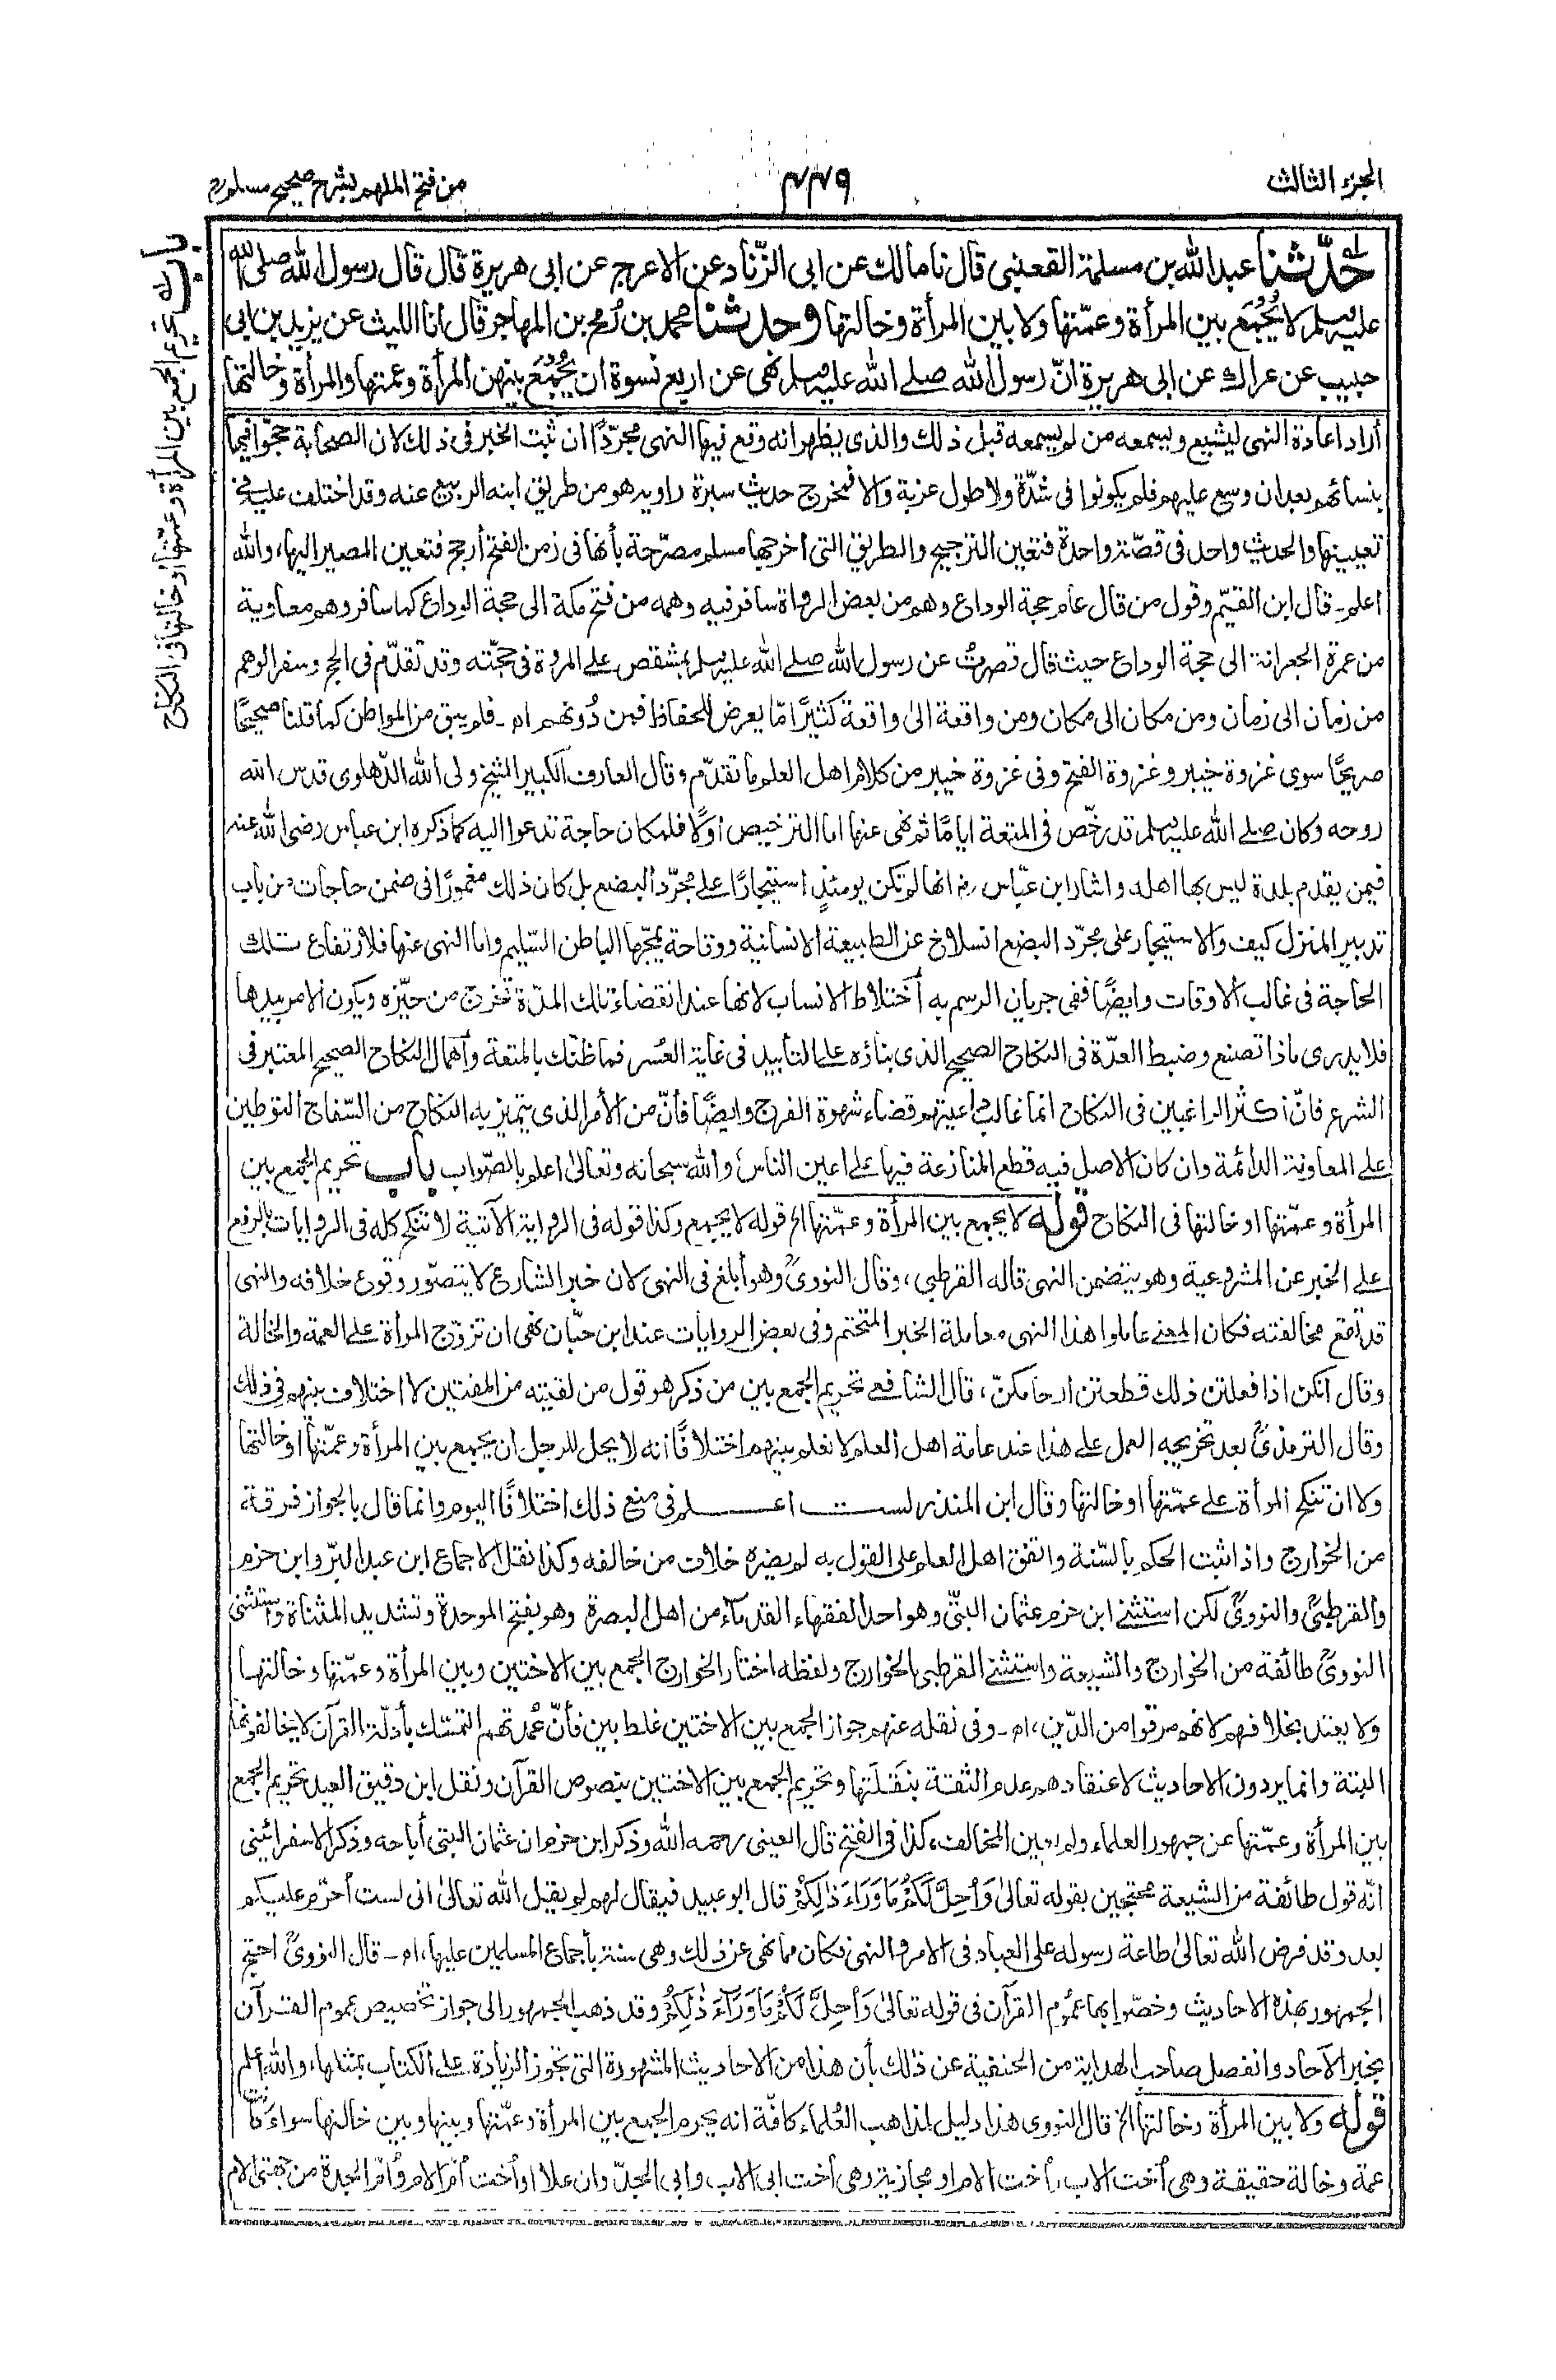 الجزء الثالث
٤٤٩
من فتح الملهم بشرح صحيح مسلم
باب تحريم الجمع بين المرأة وعمتها أو خالتها في النكاح
حدّثنا عبد الله بن مسلمة القعنبى قال نا مالك عن ابى الزّناد عن الاعرج عن ابى هريرة قال قال رسول الله صلى الله
عليه وسلم لا يُجْمَع بين المرأة وعمّتها ولا بين المرأة وخالتها وحدثنا محمد بن رُمح بن المهاجر قال أنا الليث عن يزيد بن ابى
حبيب عن عراك عن ابى هريرة انّ رسول الله صلے الله عليه وسلم نهى عن اربع نسوة ان يُجْمَعَ بينهن المرأة وعمتها والمرأة وخالتها
أراد اعادة النهى ليشيع ويسمعه من لم يسمعه قبل ذلك والذى يظهر انه وقع فيها النهى مجرّدًا ان ثبت الخبر فى ذلك لان الصحابة حجّوا فيها
بنسائهم بعد ان وسع عليهم فلم يكونوا فى شدّة ولا طول عزبة والا فمخرج حديث سبرة راويه هو من طريق ابنه الربيع عنه وقد اختلف عليه فى
تعيينها والحديث واحد فى قصّة واحدة فتعين الترجيح والطريق التى اخرجها مسلم مصرّحة بأنها فى زمن الفتح أرجح فتعين المصير اليها، والله
اعلم ـ قال ابن القيّم وقول من قال عام حجة الوداع وهم من بعض الرواة سافر فيه وهمه من فتح مكة الى حجة الوداع كما سافر وهم معاوية
من عمرة الجعرانة الى حجة الوداع حيث قال قصرتُ عن رسول الله صلے الله عليه وسلم بمشقص على المروة فى حجّته وقد تقدّم فى الحج وسفر الوهم
من زمان الى زمان ومن مكان الى مكان ومن واقعة الىٰ واقعة كثيرًا مّا يعرض للحفاظ فمن دُونهم اه ـ فلم يبق من المواطن كما قلنا صحيحًا
صريحًا سوى غزوة خيبر وغزوة الفتح وفى غزوة خيبر من كلام اهل العلم ما تقدّم وقال العارف الكبير الشيخ ولى الله الدّهلوى قدس الله
روحه وكان صلے الله عليه وسلم قد رخّص فى المتعة ايامًا ثم نهى عنها اما الترخيص أولًا فلمكان حاجة تدعوا اليه كما ذكره ابن عباس رضى الله عنه
فيمن يقدم بلدة ليس بها اهله واشار ابن عبّاس رض انها لم تكن يومئذٍ استيجارًا على مجرّد البضع بل كان ذلك مغمورًا فى ضمن حاجات من باب
تدبير المنزل كيف والاستيجار على مجرّد البضع انسلاخ عن الطبيعة الانسانية ووقاحة يمجّها الباطن السّليم واما النهى عنها فلارتفاع تلك
الحاجة فى غالب الاوقات وايضًا ففى جريان الرسم به أختلاط الانساب لانها عند انقضاء تلك المدّة تخرج من حيّزه ويكون الامر بيدها
فلا يدرى ماذا تصنع وضبط العدّة فى النكاح الصحيح الذى بناؤه على التأبيد فى غاية العُسر فما ظنّك بالمتعة وأهمال النكاح الصحيح المعتبر فى
الشرع فانّ اكثر الراغبين فى النكاح انما غالب داعيتهم قضاء شهوة الفرج وايضًا فانّ من الأمر الذى يتميز به النكاح من السّفاح التوطين
على المعاونة الدائمة وان كان الاصل فيه قطع المنازعة فيها على اعين الناس والله سبحانه وتعالىٰ اعلم بالصّواب باب تحريم الجمع بين
المرأة وعمّتها او خالتها فى النكاح قوله لا يجمع بين المرأة وعمّتها الخ قوله لا يجمع وكذا قوله فى الرواية الآتية لا تنكح كله فى الروايات بالرفع
على الخبر عن المشروعية وهو يتضمن النهى قاله القرطبى، وقال النووىؒ وهو أبلغ فى النهى لان خبر الشارع لا يتصّور وقوع خلافه والنهى
قد تقع مخالفته فكان المعنے عاملوا هذا النهى معاملة الخبر المتحتم وفى بعض الروايات عند ابن حبّان نهى ان تزوّج المرأة على العمة والخالة
وقال انكن اذا فعلتن ذلك قطعتن ارحامكنّ، قال الشافعے تحريم الجمع بين من ذكر هو قول من لقيته من المفتين لا اختلاف بينهم فى ذلك
وقال الترمذىؒ بعد تخريجه العمل على هذا عند عامة اهل العلم لا نعلم بينهم اختلافًا انه لا يحل للرجل ان يجمع بين المرأة وعمّتها او خالتها
ولا ان تنكح المرأة على عمّتها او خالتها وقال ابن المنذر لست اعلم فى منع ذلك اختلافًا اليوم وانما قال بالجواز فرقة
من الخوارج واذا ثبت الحكم بالسّنة واتفق اهل العلم على القول به لم يضره خلاف من خالفه وكذا نقل الاجماع ابن عبد البرّ وابن حزم
والقرطبىؒ والنووىؒ لكن استثنے ابن حزم عثمان البتّى وهو احد الفقهاء القدماء من اهل البصرة وهو بفتح الموحدة وتشديد المثناة واستثنى
النووىؒ طائفة من الخوارج والشيعة واستثنے القرطبى الخوارج ولفظه اختار الخوارج الجمع بين الاختين وبين المرأة وعمّتها وخالتها
ولا يعتد بخلافهم لانهم مرقوا من الدّين، اه ـ وفى نقله عنهم جواز الجمع بين الاختين غلط بين فأنّ عُمدتهم التمسّك بأدلّة القرآن لا يخالفونها
البتة وانما يردون الاحاديث لاعتقادهم عدم الثقة بنَقَلَتها وتحريم الجمع بين الاختين بنصوص القرآن ونقل ابن دقيق العيد تحريم الجمع
بين المرأة وعمّتها عن جمهور العلماء ولم يعين المخالف، كذا فى الفتح قال العينى رحمه الله وذكر ابن حزم ان عثمان البتى أباحه وذكر الاسفرائينى
انّه قول طائفة من الشيعة محتجين بقوله تعالىٰ وَأُحِلَّ لَكُمْ مَا وَرَاءَ ذٰلِكُمْ قال ابو عبيد فيقال لهم لم يقل الله تعالىٰ انى لست أحرّم عليكم
بعد وقد فرض الله تعالىٰ طاعة رسوله على العباد فى الامر والنهى فكان مما نهى عن ذلك وهى سنة بأجماع المسلمين عليها، اه ـ قال النووىؒ احتج
الجمهور بهذه الاحاديث وخصّوا بها عُموم القرآن فى قوله تعالىٰ وَأُحِلَّ لَكُمْ مَا وَرَآءَ ذٰلِكُمْ وقد ذهب الجمهور الى جواز تخصيص عموم القرآن
بخبر الآحاد وانفصل صاحب الهداية من الحنفية عن ذالك بأن هذا من الاحاديث المشهورة التى تجوز الزيادة على الكتاب بمثلها، والله اعلم
قوله ولا بين المرأة وخالتها الخ قال النووى هذا دليل لمذاهب العُلماء كافّة انه يحرم الجمع بين المرأة وعمّتها وبينها وبين خالتها سواء كانت
عمة وخالة حقيقة وهى أخت الاب وأخت الام او مجازية وهى أخت ابى الاب وابى الجدّ وان علا او أخت أمّ الام وأمّ الجدة من جهتى الام